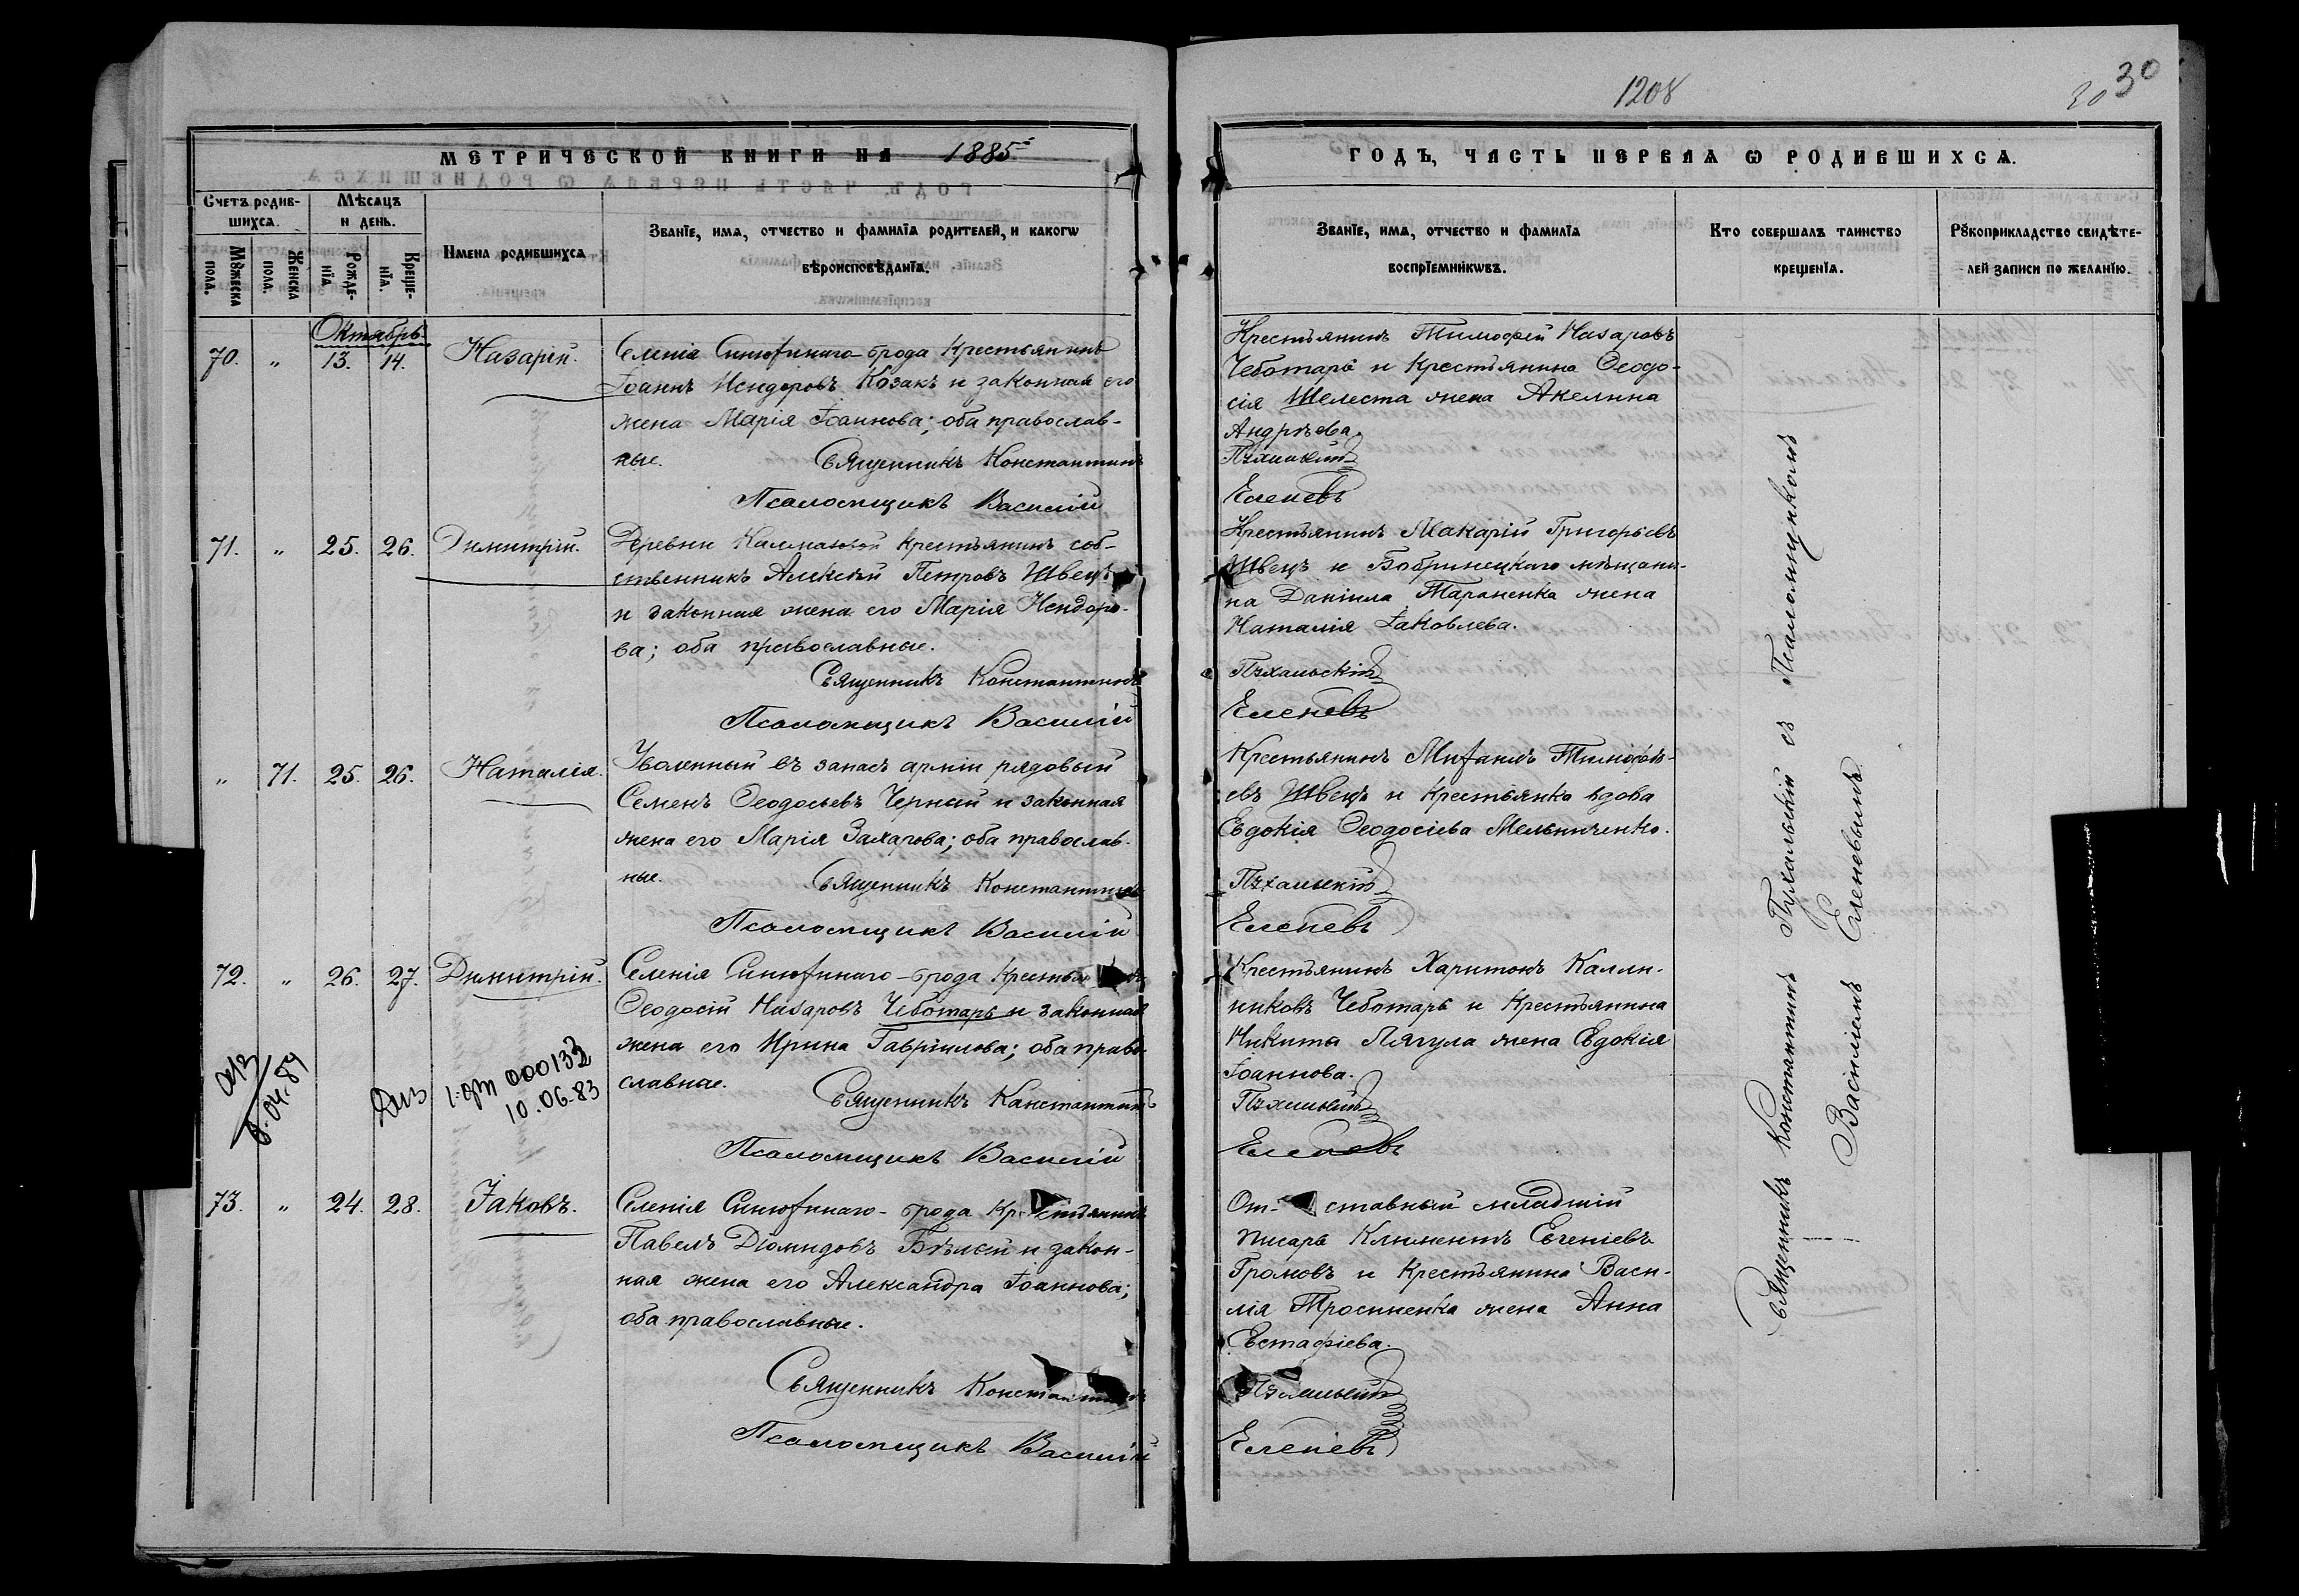 1208
30
30
МЕТРИЧЕСКОЙ КНИГИ НА 1885й
ГОДЪ, ЧАСТЬ ПЕРВАЯ Ѡ РОДИВШИХСѦ.
Счетъ родив-
шихсѧ.
Мѣсѧцъ
и день.
Мꙋжеска
пола.
Женска
пола.
Рожде-
нїѧ.
Креще-
нїѧ.
Имена родившихсѧ
Званїе, имѧ, отчество и фамилїѧ родителей, и какогѡ
вѣроисповѣданїѧ.
Званїе, имѧ, отчество и фамилїѧ
воспрїемникѡвъ.
Кто совершалъ таинство
крещенїѧ.
Рꙋкоприкладство свидѣте-
лей записи по желанїю.
Октябрь
70. " 13. 14. Назарій.
Селенія Синюхинаго-брода Крестьянинъ
Іоаннъ Исидоровъ Козакъ и законная его
жена Марія Іоаннова; оба православ-
ные. Священникъ Константинъ
Псаломщикъ Василій
Крестьянинъ Тимофей Назаровъ
Чеботарь и Крестьянина Ѳеодо-
сія Шелеста жена Акелина
Андрѣева.
Пухальскій
Еленевъ
71. " 25. 26. Димитрій.
Деревни Калмазовой Крестьянинъ соб-
ственникъ Алексѣй Петровъ Швецъ
и законная жена его Марія Исидоро-
ва; оба православные.
Священникъ Константинъ
Псаломщикъ Василій
Крестьянинъ Макарій Григорьевъ
Швецъ и Бобринецкаго мѣщани-
на Даніила Тараненка жена
Наталія Іаковлева.
Пухальскій
Еленевъ
" 71. 25. 26. Наталія.
Уволенный въ запасъ арміи рядовый
Семенъ Ѳеодосьевъ Черный и законная
жена его Марія Захарова; оба православ-
ные. Священникъ Константинъ
Псаломщикъ Василій
Крестьянинъ Михаилъ Тимофѣ-
евъ Швецъ и Крестьянка вдова
Евдокія Ѳеодосіева Мельниченко.
Пухальскій
Еленевъ
72. " 26. 27. Димитрій.
Селенія Синюхинаго-брода Крестьянинъ
Ѳеодосій Назаровъ Чеботарь и законная
жена его Ирина Гавріилова; оба право-
славные. Священникъ Константинъ
Псаломщикъ Василій
Крестьянинъ Харитонъ Калли-
никовъ Чеботарь и Крестьянина
Никита Лягула жена Евдокія
Іоаннова.
Пухальскій
Еленевъ
000133
10.06.83
73. " 24. 28. Іаковъ.
Селенія Синюхинаго-брода Крестьянинъ
Павелъ Діомидовъ Бѣлый и закон-
ная жена его Александра Іоаннова;
оба православные.
Священникъ Константинъ
Псаломщикъ Василій
От-ставный младшій
писарь Климентъ Евгеніевъ
Громовъ и Крестьянина Васи-
лія Тросиненка жена Анна
Евстафіева.
Пухальскій
Еленевъ
Священникъ Константинъ Пухальскій съ Псаломщикомъ
Василіемъ Еленевымъ